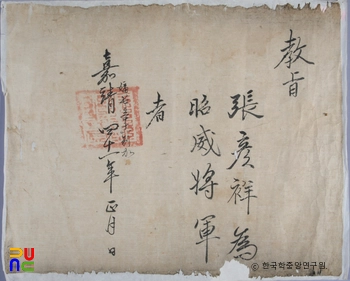 教旨
張彦祥為
昭威將軍
者
嘉靖四十一年正月 日
© 한국학중앙연구원